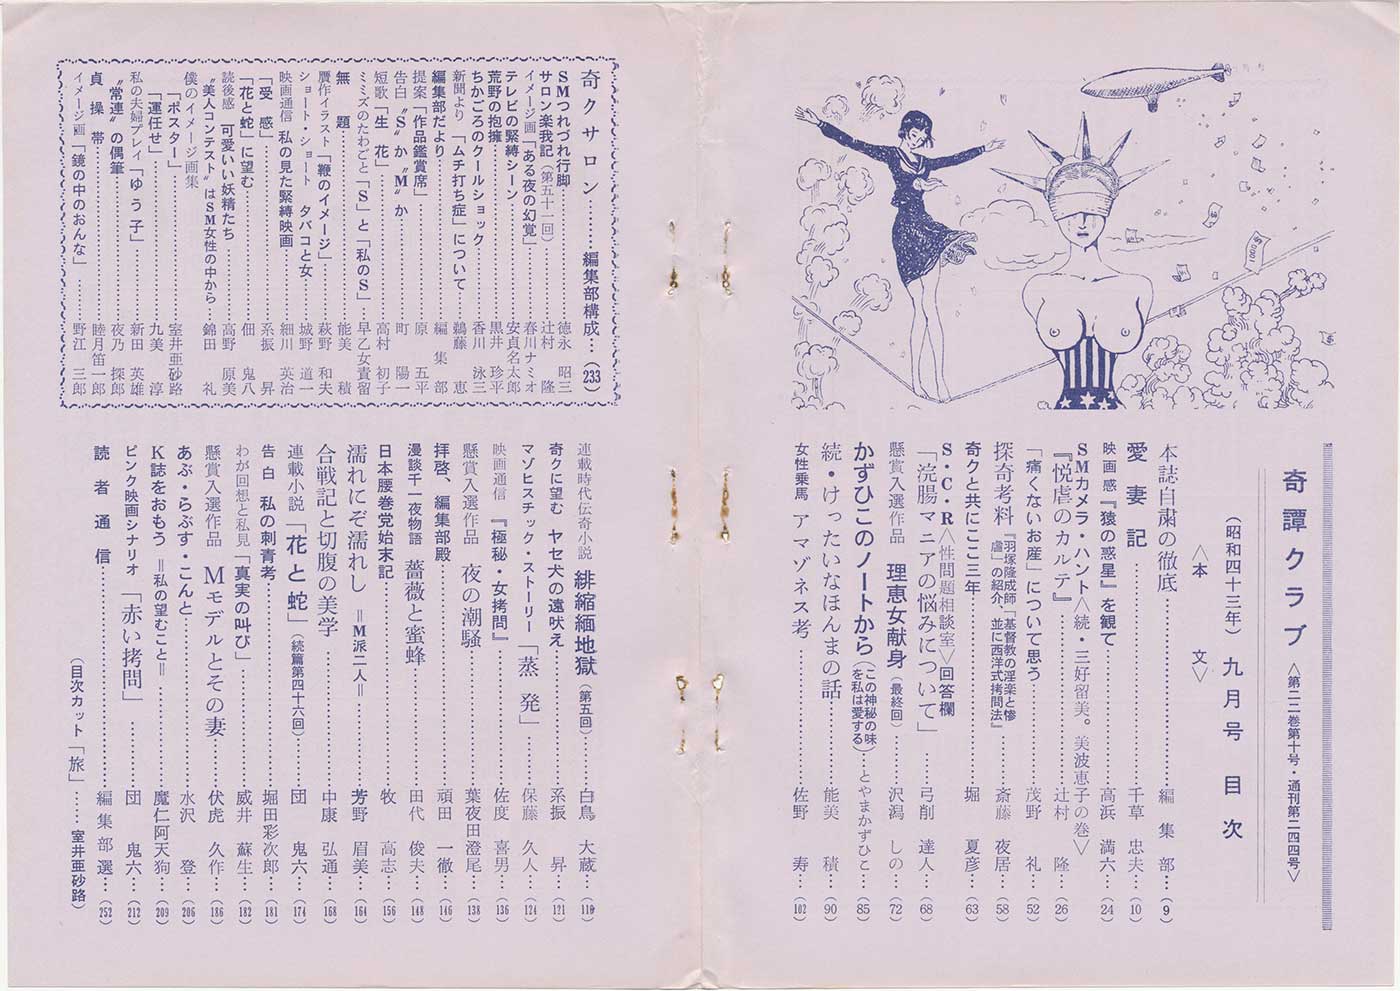 奇譚クラブ
〈第二二巻第十号・通刊第二四四号〉
(昭和四十三年) 九月号 目次
〈本文〉
本誌自粛の徹底……編集部…(9)
愛妻記……千草忠夫…(10)
映画感『猿の惑星』を観て……高浜満六…(24)
SMカメラ・ハント〈続・三好留美。美波恵子の巻〉
『悦虐のカルテ』……辻村隆…(26)
「痛くないお産」について思う……茂野礼…(52)
探奇考料『羽塚隆成師「基督教の淫楽と惨虐」の紹介 並に西洋式拷問法』……斎藤夜居…(58)
奇クと共にここ三年……堀夏彦…(63)
S・C・R〈性問題相談室〉回答欄
「浣腸マニアの悩みについて」……弓削達人…(68)
懸賞入選作品 理恵女献身(最終回)……沢潟しの…(72)
かずひこのノートから(この神秘の味を私は愛する)…とやまかずひこ…(85)
続・けったいなほんまの話……能美積…(90)
女性乗馬 アマゾネス考……佐野寿…(102)
連載時代伝奇小説 緋縮緬地獄(第五回)……白鳥大蔵…(110)
奇クに望む ヤセ犬の遠吠え……系振昇…(121)
マゾヒスチック・ストーリー「蒸発」……保藤久人…(124)
映画通信『極秘・女拷問』……佐度喜男…(136)
懸賞入選作品 夜の潮騒……葉夜田澄尾…(138)
拝啓、編集部殿……頑田一徹…(146)
漫談千一夜物語 薔薇と蜜蜂……田代俊夫…(148)
日本腰巻党始末記……牧高志…(156)
濡れにぞ濡れし =M派二人=……芳野眉美…(164)
合戦記と切腹の美学……中康弘通…(168)
連載小説「花と蛇」(続篇第四十六回)……団鬼六…(174)
告白 私の刺青考……堀田彩次郎…(181)
わが回想と私見「真実の叫び」……威井蘇生…(182)
懸賞入選作品 Mモデルとその妻……伏虎久作…(186)
あぶ・らぶす・こんと……水沢登…(206)
K誌をおもう =私の望むこと=……魔仁阿天狗…(209)
ピンク映画シナリオ「赤い拷問」……団鬼六…(212)
読者通信……編集部選…(252)
(目次カット「旅」……室井亜砂路)
奇クサロン……編集部構成…(233)
SMつれづれ行脚……徳永昭三
サロン楽我記(第五十一回)……辻村隆
イメージ画「ある夜の幻覚」……春川ナミオ
テレビの緊縛シーン……安貞名太郎
荒野の抱擁……黒井珍平
ちかごろのクールショック……香川泳三
新聞より「ムチ打ち症」について……鵜藤恵
編集部だより……編集部
提案「作品鑑賞席」……原五平
告白〝S〟か〝M〟か……町陽一
短歌「生花」……高村初子
ミミズのたわごと「S」と「私のS」……早乙女責留
無題……能美積
贋作イラスト「鞭のイメージ」……萩野和夫
ショート・ショート タバコと女……城野道一
映画通信 私の見た緊縛映画……細川英治
「受感」……系振昇
「花と蛇」に望む……佃鬼八
読後感 可愛いい妖精たち……高野原美
〝美人コンテスト〟はSM女性の中から……錦田礼
僕のイメージ画集
「ポスター」……室井亜砂路
「運任せ」……九美淳
私の夫婦プレイ「ゆう子」……新田英雄
〝常連〟の偶筆……夜乃探郎
貞操帯……睦月笛一郎
イメージ画「鏡の中のおんな」……野江三郎